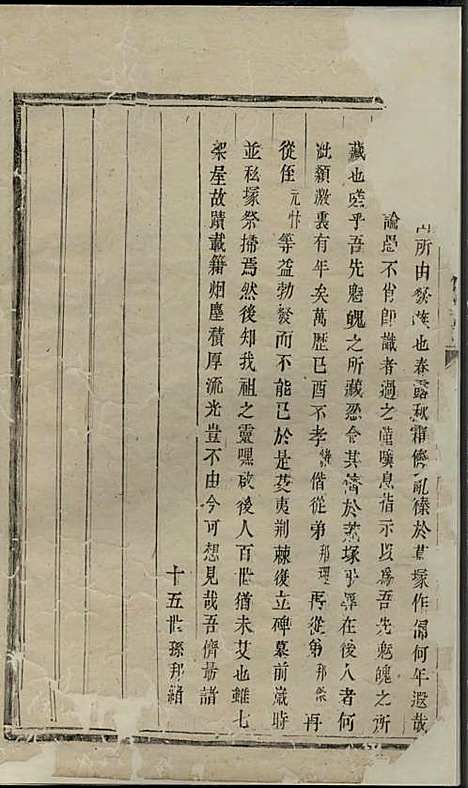 所由發族也春露秋霜儕亂榛於草塚作歸何年遐哉
論愚不肖即識者過之僅嘆息指示以為吾先魄魄之所
藏也嗟乎吾先魄魄之所藏忍令其儕於荒塚乎罪在後人者何
泚顙疚裏有年矣萬歷己酉不孝偕從弟邦理再從弟邦傑再
從侄元忭等益勃發而不能已於是芟夷荆棘復立碑墓前嵗時
並私塚祭掃焉然後知我祖之靈嘿啟後人百世猶未艾也雖七
架屋故蹟載籍烟塵積厚流光豈不由今可想見哉吾儕勗諸
十五世孫邦緒